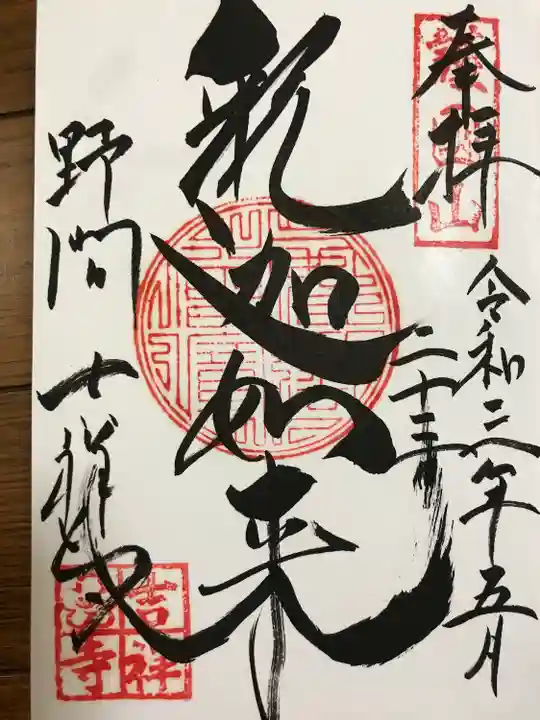 奉拝
令和三年五月
二十三日
釈迦如来
野間 吉祥寺
吉祥
寺